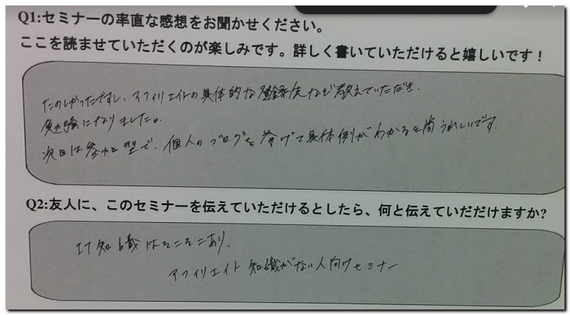 Q1:セミナーの率直な感想をお聞かせください。
ここを読ませていただくのが楽しみです。詳しく書いていただけると嬉しいです！
たのしかったですし、アフィリエイトの具体的な登録先など教えていただき、
勉強になりました。
次回は参加型で、個人のブログを挙げて具体例がわかると尚うれしいです。
Q2:友人に、このセミナーを伝えていただけるとしたら、何と伝えていだだけますか?
IT知識はそこそこあり、
アフィリエイト知識がない人向けセミナー